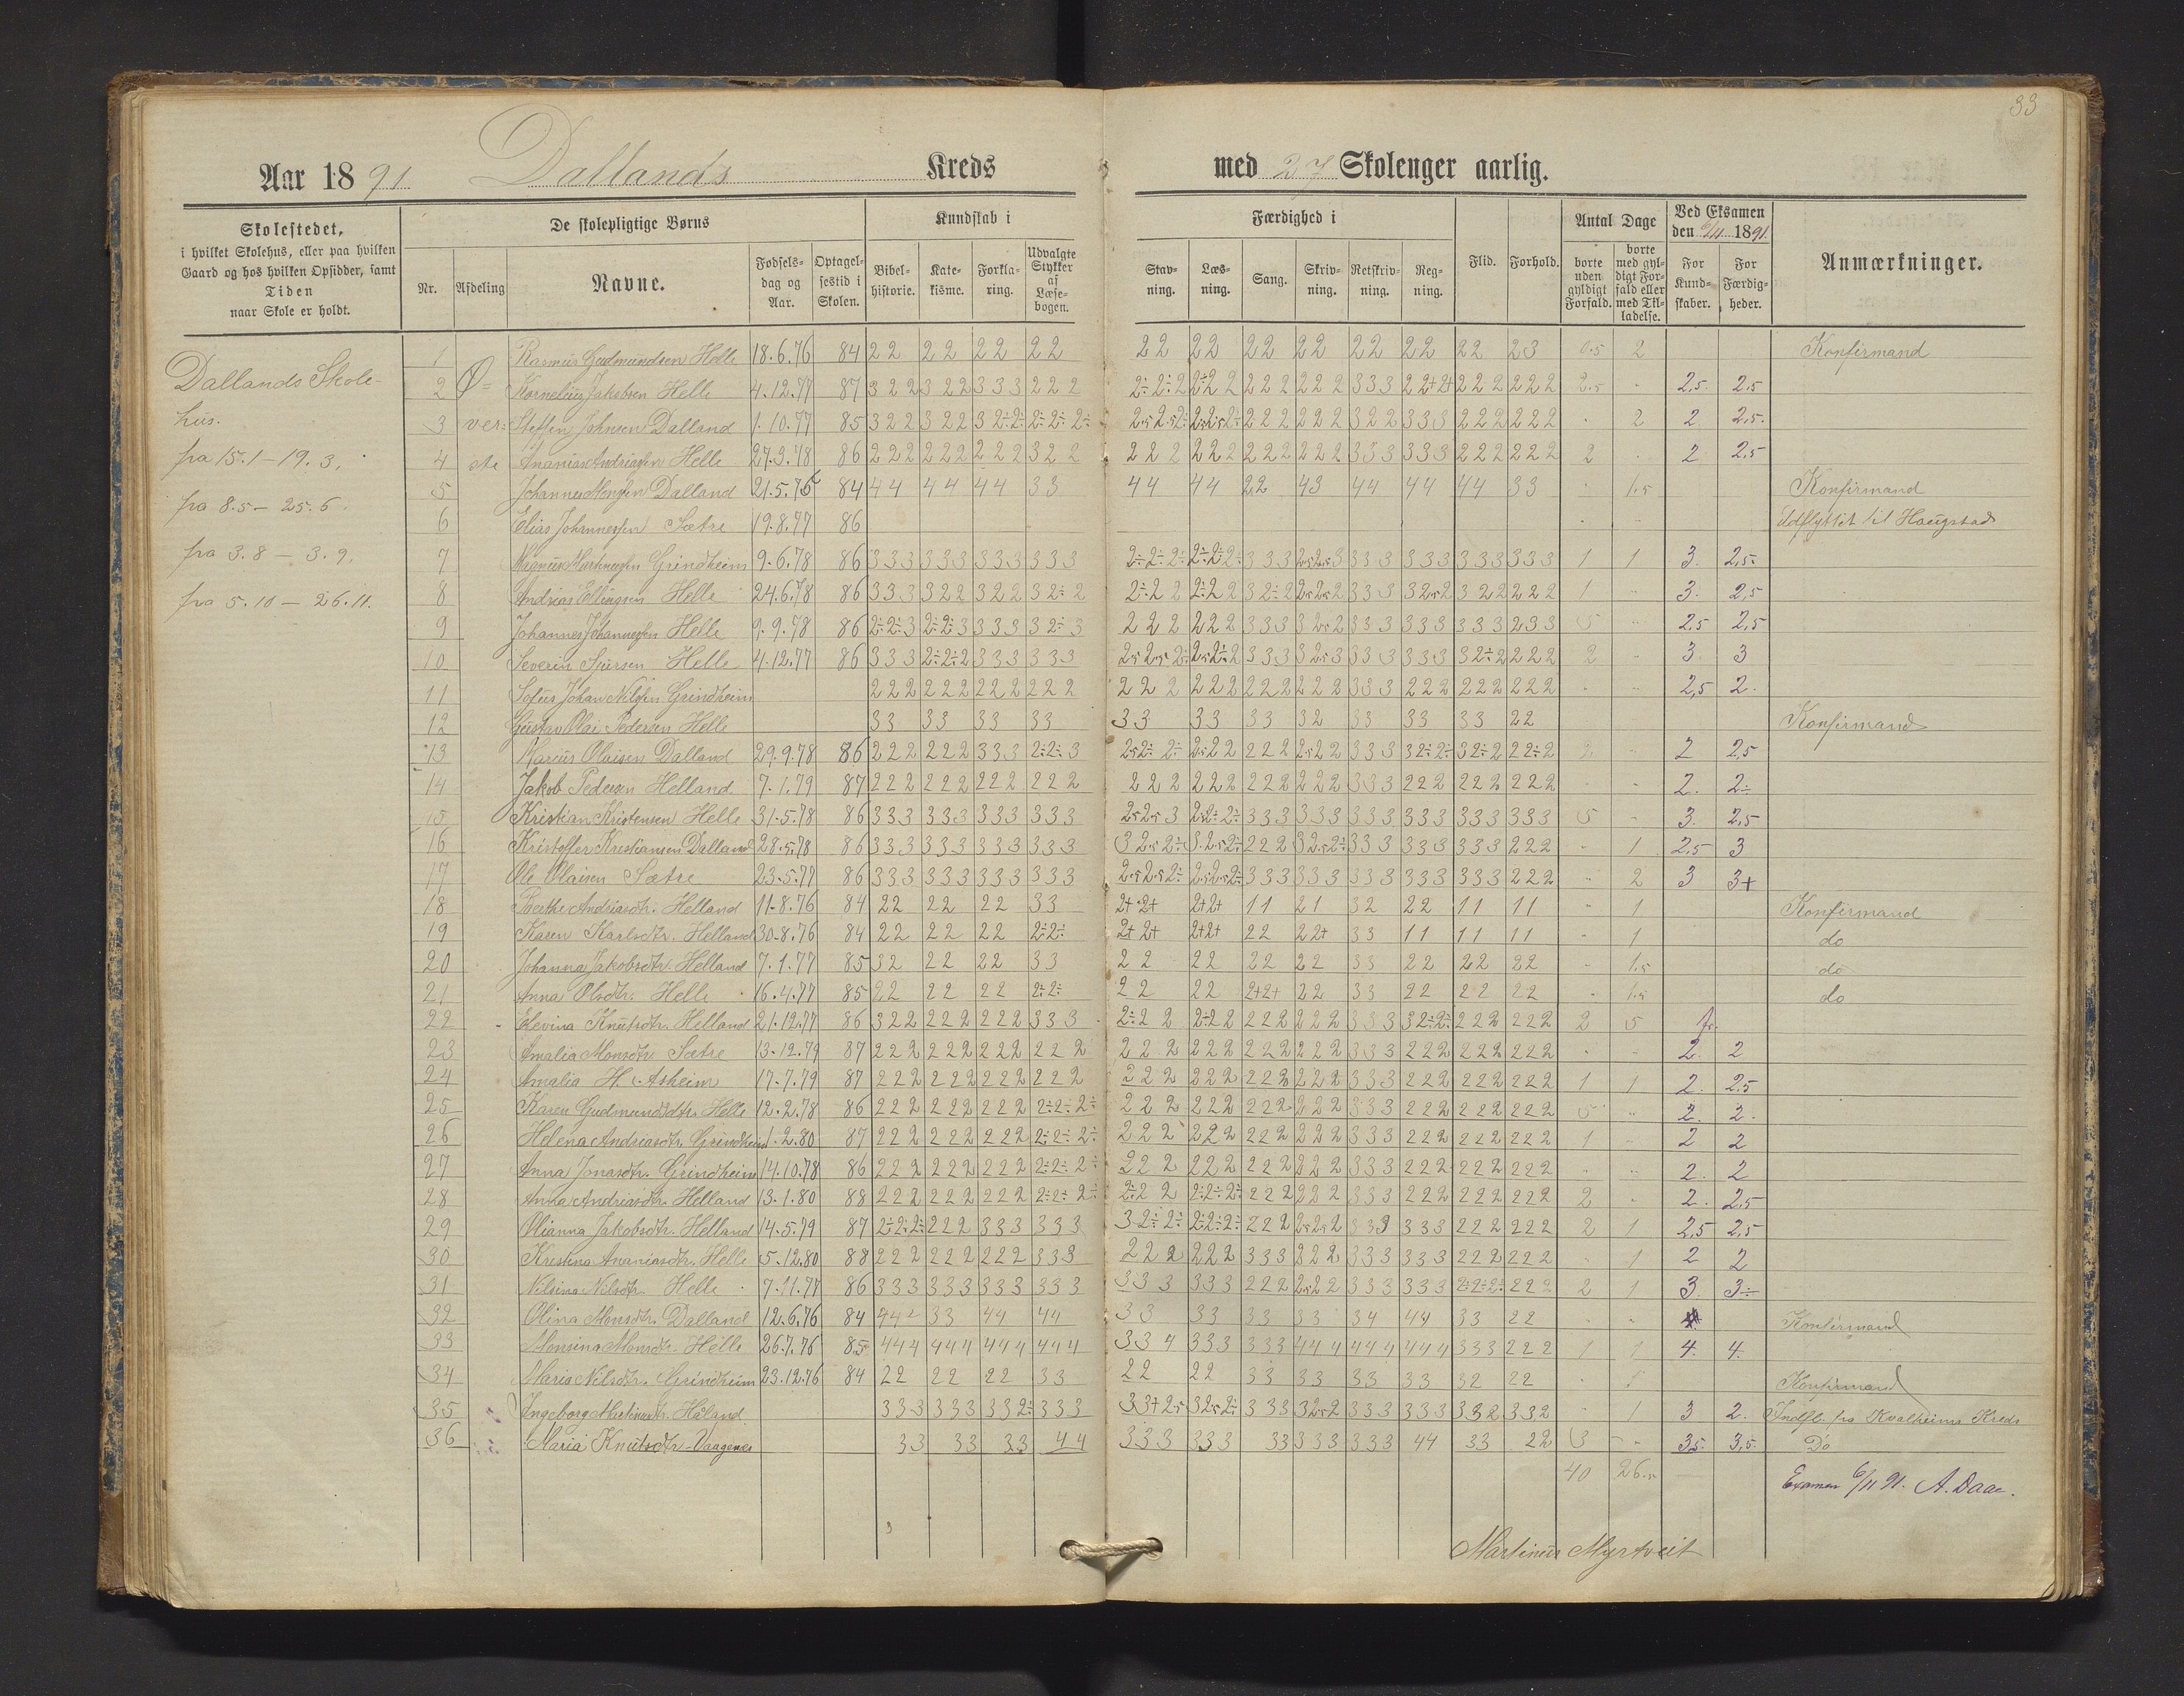 33
Aar 1891 Dallands Kreds med 27 Skolenger aarlig.
Skolestedet, i hvilket Skolehus, eller paa hvilken Gaard og hos hvilken Opsidder, samt Tiden naar Skole er holdt.
De skolepligtige Børns
Nr. Afdeling Navne. Fødselsdag og Aar. Optagelsestid i Skolen.
Kundskab i
Bibelhistorie. Katekisme. Forklaring. Udvalgte Stykker af Læsebogen.
Færdighed i
Stavning. Læsning. Sang. Skrivning. Retskrivning. Regning. Flid. Forhold.
Antal Dage
borte uden gyldigt Forfald. borte med gyldigt Forfald eller med Tilladelse.
Ved Eksamen den 6/11 1891.
For Kundskaber. For Færdigheder.
Anmærkninger.
Dallands Skole-
hus.
fra 15.1 – 19.3.
fra 8.5 – 25.6.
fra 3.8 – 3.9.
fra 5.10 – 26.11.
1 Rasmus Gudmundsen Helle 18.6.76 84 22 22 22 22 22 22 22 22 22 22 22 23 0.5 2 Konfirmand
2 Ø= Kornelius Jakobsen Helle 4.12.77 87 322 322 333 222 2÷2÷2 2÷22 222 222 333 22+2+ 222 222 2.5 " 2,5. 2,5
3 ver= Steffen Johnsen Dalland 1.10.77 85 322 322 32÷2÷ 2÷2÷2÷ 222 222 322 333 222 222 " 2 2 2,5.
4 ste Ananias Andriassen Helle 27.3.78 86 222 222 222 322 222 222 222 222 333 333 222 222 2 2 2,5
5 Johannes Monssen Dalland 21.5.76 84 44 44 44 33 44 44 22 43 44 44 44 33 " 1.5 Konfirmand
6 Elias Johannessen Sætre 19.8.77 86 " " Udflyttet til Haugstad
7 Magnus Martinussen Grindheim 9.6.78 86 333 333 333 333 2÷2÷2÷ 2÷2÷2÷ 333 2.52.53 333 333 333 333 1 1 3. 2,5÷
8 Andrias Ellingsen Helle 24.6.78 86 333 322 322 32÷2 2÷22 2÷22 32÷2 2.52.52 333 32.52 322 222 1 " 3. 2,5
9 Johannes Johannessen Helle 9.9.78 86 2÷2÷3 2÷2÷3 333 32÷3 222 222 333 32.52 333 333 333 233 5 " 2,5 2,5
10 Severin Sjursen Helle 4.12.77 86 333 2÷2÷2 333 333 333 32.53 333 333 32÷2 222 2 " 3 3
11 Sofus Johan Nilssen Grindheim 222 222 222 222 222 222 222 222 333 222 222 222 " " 2,5 2.
12 Gustav Olai Pedersen Helle 33 33 33 33 33 33 33 32 33 33 33 22 Konfirmand
13 Marius Olaisen Dalland 29.9.78 86 222 222 333 2÷2÷3 2.52÷2÷ 2.522 222 2.522 333 32÷2÷ 32÷2 22÷2 2 " 2 2,5
14 Jakob Pedersen Helland 7.1.79 87 222 222 222 222 222 222 222 222 333 222 222 222 " " 2. 2÷
15 Kristian Kristensen Helle 31.5.78 86 333 333 333 333 2.52.53 2.52÷2÷ 333 333 333 333 333 333 5 " 3. 2,5
16 Kristoffer Kristiansen Dalland 28.5.78 86 333 333 333 333 32.52÷ 32.52÷ 222 32.52÷ 333 333 333 222 " 1 2,5 3
17 Ole Olaisen Sætre 23.5.77 86 333 333 333 333 2.52.52÷ 2.52.52÷ 333 333 333 333 333 222 " 2 3 3+
18 Berthe Andriasdtr. Helland 11.8.76 84 22 22 22 33 2+2+ 2+2+ 11 21 32 22 11 11 " 1 Konfirmand
19 Karen Karlsdtr. Helland 30.8.76 84 22 22 22 2÷2÷ 2+2+ 2+2+ 22 22+ 33 11 11 11 " 1 do
20 Johanna Jakobsdtr. Helland 7.1.77 85 32 22 22 33 22 22 22 22 33 22 22 22 " 1.5 do
21 Anna Olsdtr. Helle 16.4.77 85 22 22 22 2÷2÷ 22 22 2+2+ 22 33 22 22 22 " 1.5 do
22 Elevina Knutsdtr. Helland 21.12.77 86 322 222 222 333 2÷22 2÷22 222 222 333 32÷2÷ 222 222 2 5 fr.
23 Amalia Monsdtr. Sætre 13.12.79 87 222 222 222 222 222 222 222 222 333 222 222 222 " " 2. 2
24 Amalia H. Asheim 17.7.79 87 222 222 222 222 222 222 222 222 333 222 222 222 1 1 2. 2,5
25 Karen Gudmundsdtr. Helle 12.2.78 86 222 222 222 2÷2÷2÷ 222 222 222 222 333 222 222 222 5 " 2. 2.
26 Helena Andriasdtr. Grindheim 1.2.80 87 222 222 222 2÷2÷2÷ 222 222 222 222 333 222 222 222 1 " 2 2
27 Anna Jonasdtr. Grindheim 14.10.78 86 222 222 222 2÷2÷2÷ 222 222 222 222 333 222 222 222 " " 2. 2
28 Anna Andriasdtr. Helland 13.1.80 88 222 222 222 2÷2÷2÷ 2÷22 2÷2÷2÷ 222 222 333 222 222 222 2 " 2. 2,5
29 Olianna Jakobsdtr. Helland 14.5.79 87 2÷2÷2÷ 222 333 333 32÷2÷ 2÷2÷2÷ 222 2.52.52 333 333 222 222 2 1 2,5 2,5
30 Kristina Ananiasdtr. Helle 5.12.80 88 222 222 222 333 222 222 333 222 333 333 222 222 " 1 2 2
31 Nilsina Nilsdtr. Helle 7.11.77 86 333 333 333 333 333 333 222 2.522 333 333 2÷2÷2÷ 222 2 1 3. 3÷
32 Olina Monsdtr. Dalland 12.6.76 84 44 33 44 44 33 33 33 33 34 44 33 22 " " Konfirmand
33 Monsina Monsdtr. Helle 26.7.76 85 444 444 444 444 334 333 333 444 444 444 333 222 1 1 4. 4.
34 Maria Nilsdtr. Grindheim 23.12.76 84 22 22 22 33 22 22 33 33 33 33 32 22 Konfirmand
35 Ingeborg Martinusdtr. Håland 333 333 332÷ 333 33+2.5 32.52÷ 333 32.52 333 333 332 332 " 1 3 2. Indfl. fra Kvalheims Kreds
36 Maria Knutsdtr. Vaagenes 33 33 33 44 333 333 33 333 333 44 33 22 3 " 3,5. 3,5. Do
40 26.5
Examen 6/11 91. A. Daae.
Martinus Myrtveit